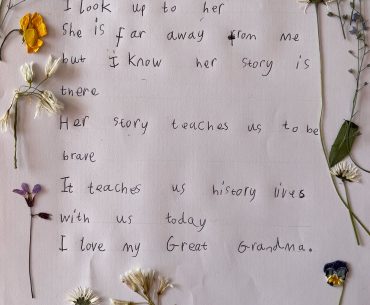 I look up to her
She is far away from me
but I know her story is
there
Her story teaches us to be
brave
It teaches us history lives
with us today
I love my Great Grandma.